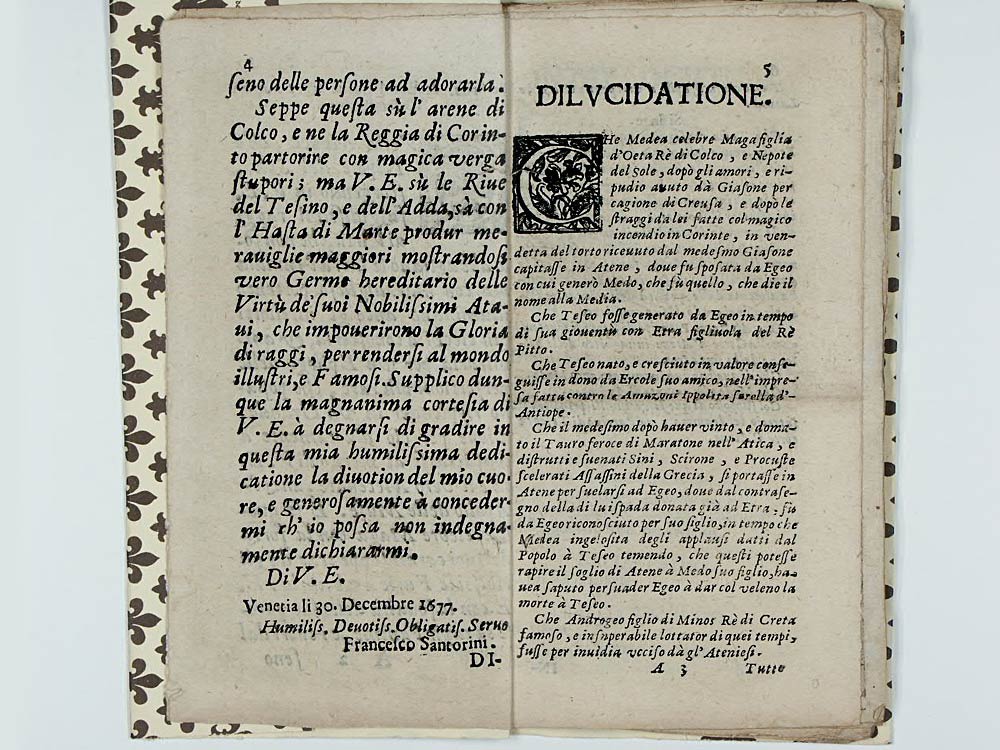 4
ſeno delle perſone ad adorarla.
Seppe queſta sù l' arene di
Colco, e ne la Reggia di Corin-
to partorire con magica verga
ſtupori; ma V. E. sù le Riue
del Teſino, e dell' Adda, sà con
l' Haſta di Marte produr me-
rauiglie maggiori moſtrandoſi
vero Germe hereditario delle
Virtù de' ſuoi Nobiliſſimi Ata-
ui, che impouerirono la Gloria
di raggi, per renderſi al mondo
illuſtri, e Famoſi. Supplico dun-
que la magnanima corteſia di
V. E. à degnarſi di gradire in
queſta mia humiliſſima dedi-
catione la diuotion del mio cuo-
re, e generoſamente à conceder-
mi ch' io poſſa non indegna-
mente dichiararmi.
Di V. E.
Venetia li 30. Decembre 1677.
Humiliſs. Deuotiſs. Obligatiſ. Seruo
Franceſco Santorini.
DI-
5
DILVCIDATIONE.
CHe Medea celebre Maga figlia
d'Oeta Rè di Colco, e Nepote
del Sole, dopò gli amori, e ri-
pudio auuto dà Giaſone per
cagione di Creuſa, e dopò le
ſtraggi da lei fatte col magico
incendio in Corinte, in ven-
detta del torto riceuuto dal medeſmo Giaſone
capitaſſe in Atene, doue fu ſpoſata da Egeo
con cui generò Medo, che fù quello, che die il
nome alla Media.
Che Teſeo foſſe generato da Egeo in tempo
di ſua giouentù con Etra figliuola del Rè
Pitto.
Che Teſeo nato, e creſciuto in valore conſe-
guiſſe in dono da Ercole ſuo amico, nell' impre-
ſa fatta contro le Amazoni Ippolita ſorella d'
Antiope.
Che il medeſimo dopò hauer vinto, e doma-
to il Tauro feroce di Maratone nell' Atica, e
diſtrutti e ſuenati Sini, Scirone, e Procuſte
ſcelerati Aſſaſſini della Grecia, ſi portaſſe in
Atene per ſuelarſi ad Egeo, doue dal contraſe-
gno della di lui ſpada donata già ad Etra, fù
da Egeo riconoſciuto per ſuo figlio, in tempo che
Medea ingeloſita degli applauſi datti dal
Popolo à Teſeo temendo, che queſti poteſſe
rapire il ſoglio di Atene à Medo ſuo figlio, ha-
uea ſaputo perſuader Egeo à dar col veleno la
morte à Teſeo.
Che Androgeo figlio di Minos Rè di Creta
famoſo, e inſuperabile lottator di quei tempi,
fuſſe per inuidia vcciſo dà gl' Atenieſi.
A 3 Tutto